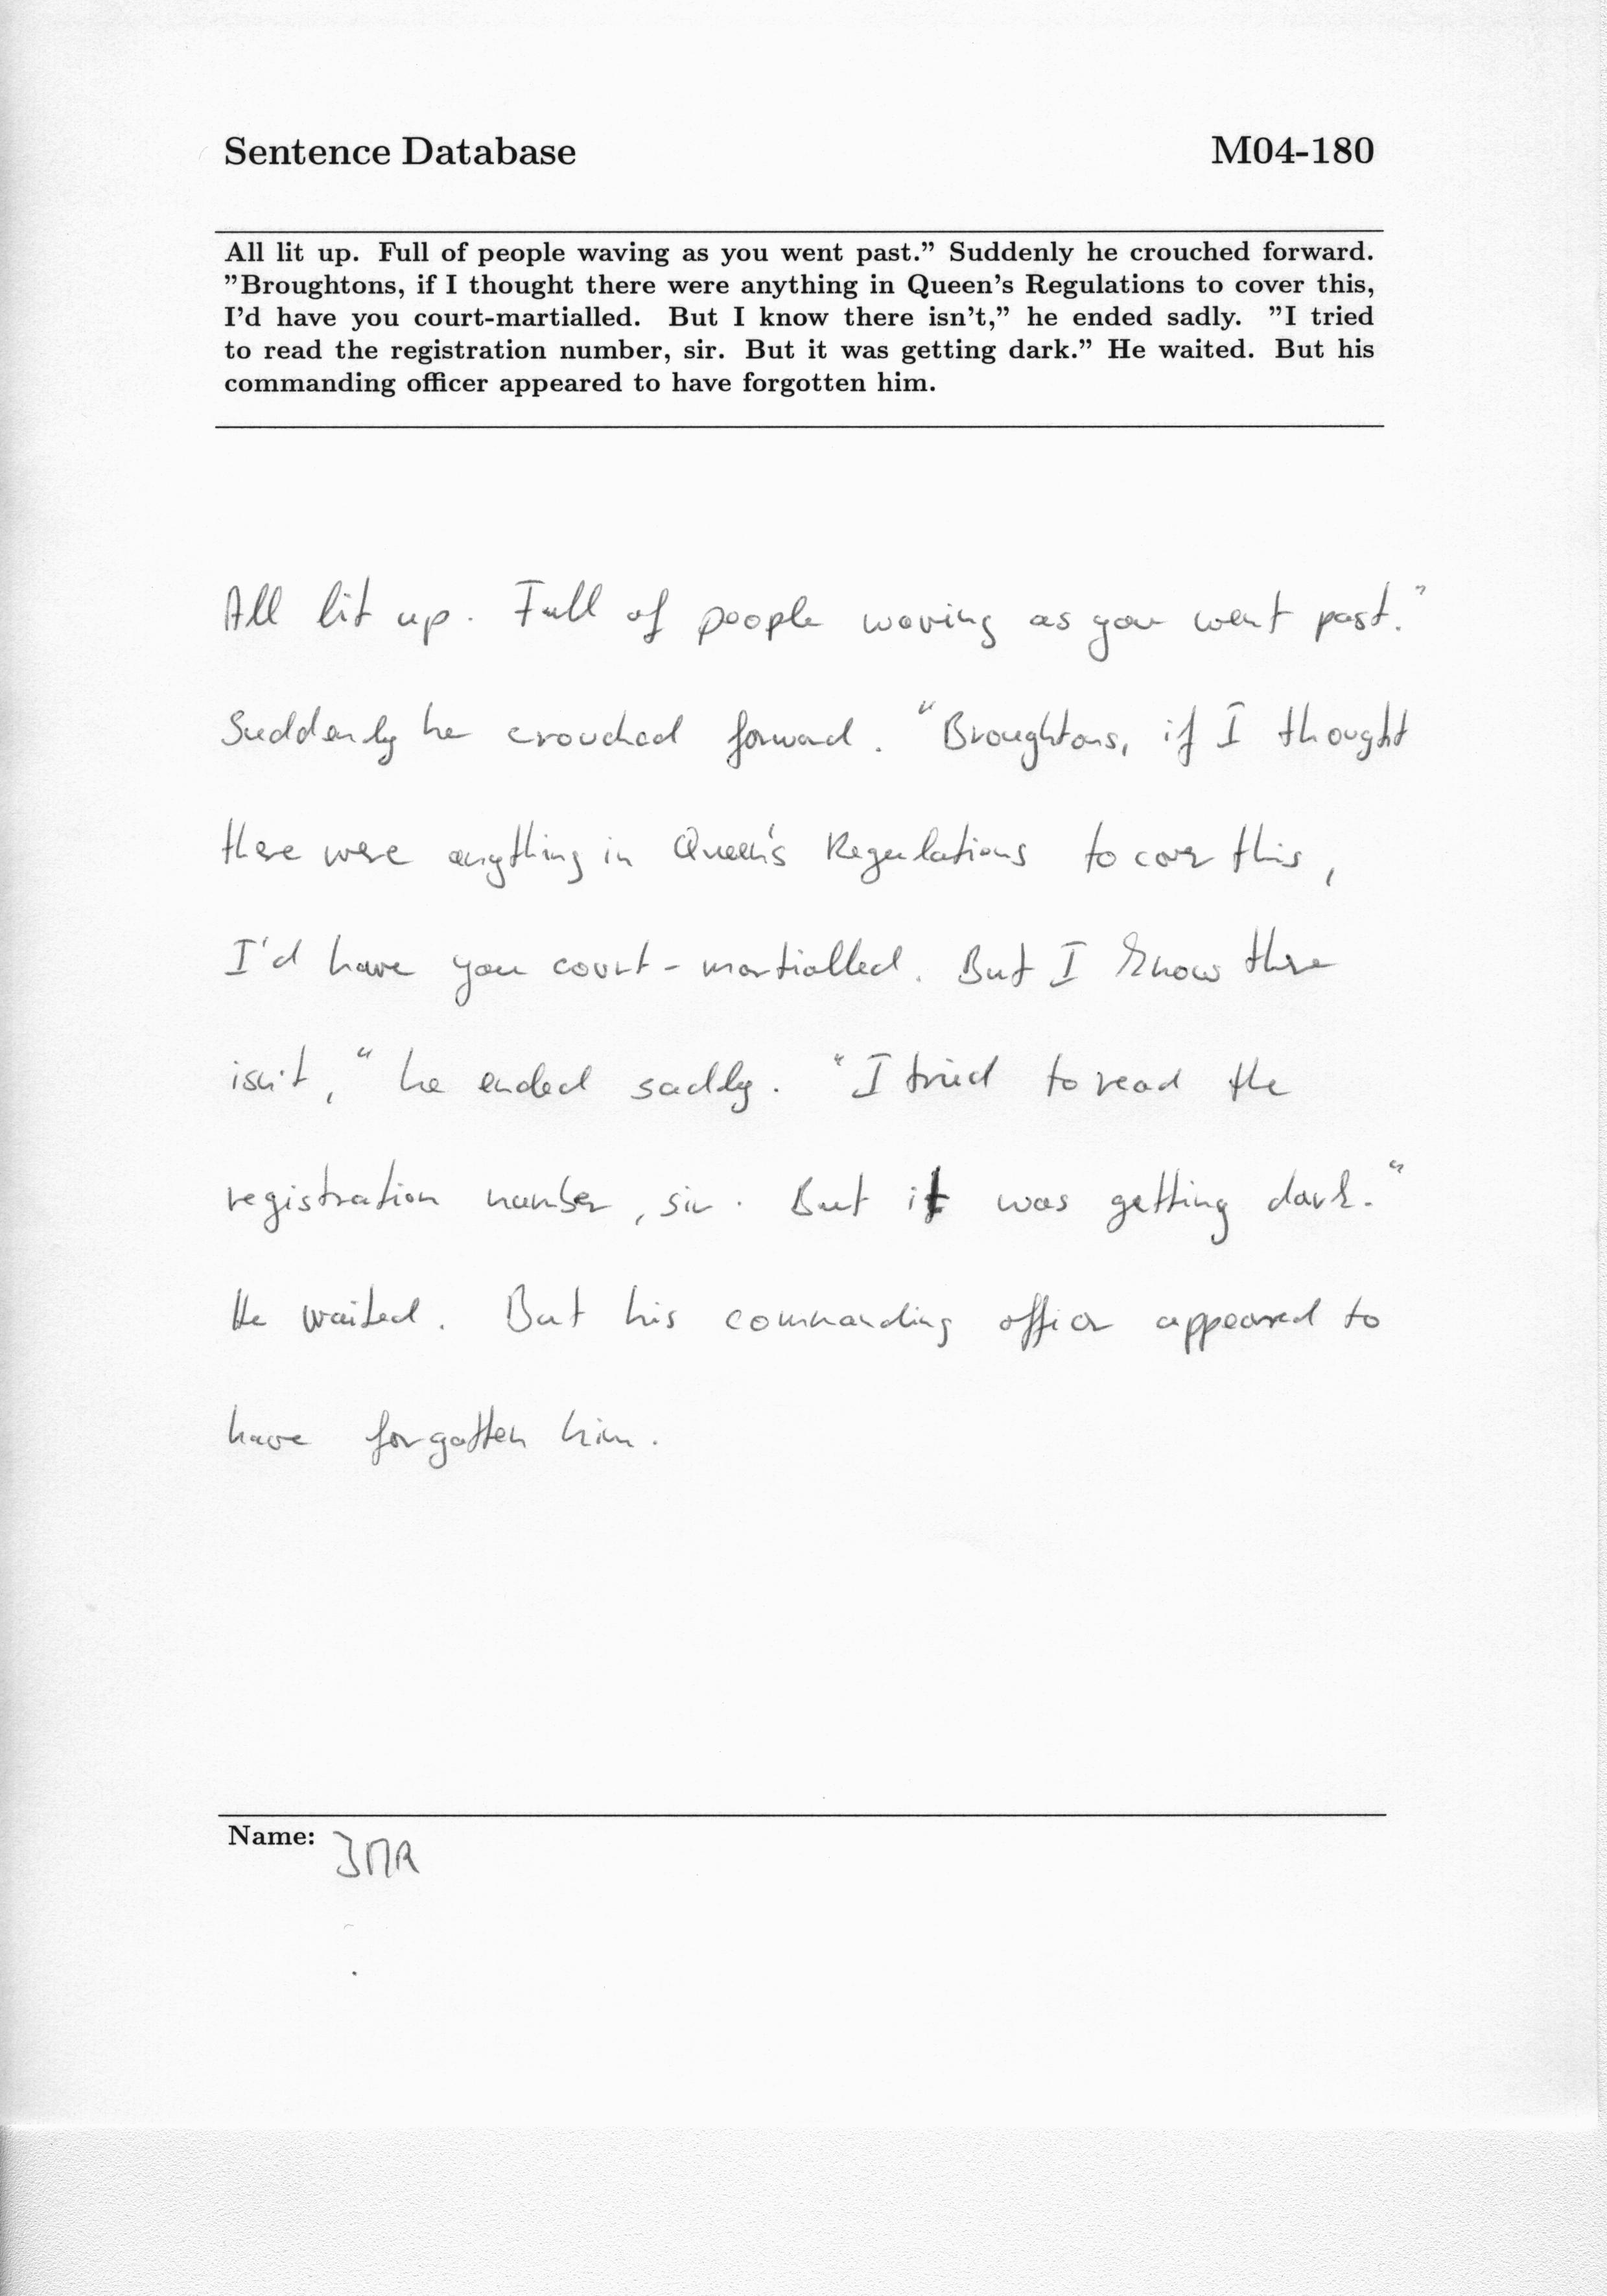 Sentence Database M04-180
All lit up. Full of people waving as you went past.” Suddenly he crouched forward.
”Broughtons, if I thought there were anything in Queen’s Regulations to cover this,
I’d have you court-martialled. But I know there isn’t,” he ended sadly. ”I tried
to read the registration number, sir. But it was getting dark.” He waited. But his
commanding officer appeared to have forgotten him.
All lit up. Full of people waving as you went past.”
Suddenly he crouched forward. “Broughtons, if I thought
there were anything in Queen's Regulations to cover this,
I'd have you court-martialled. But I know there
isn't,“ he ended sadly. “I tried to read the
registration number, sir. But it was getting dark.“
He waited. But his commanding officer appeared to
have forgotten him.
Name: JMR